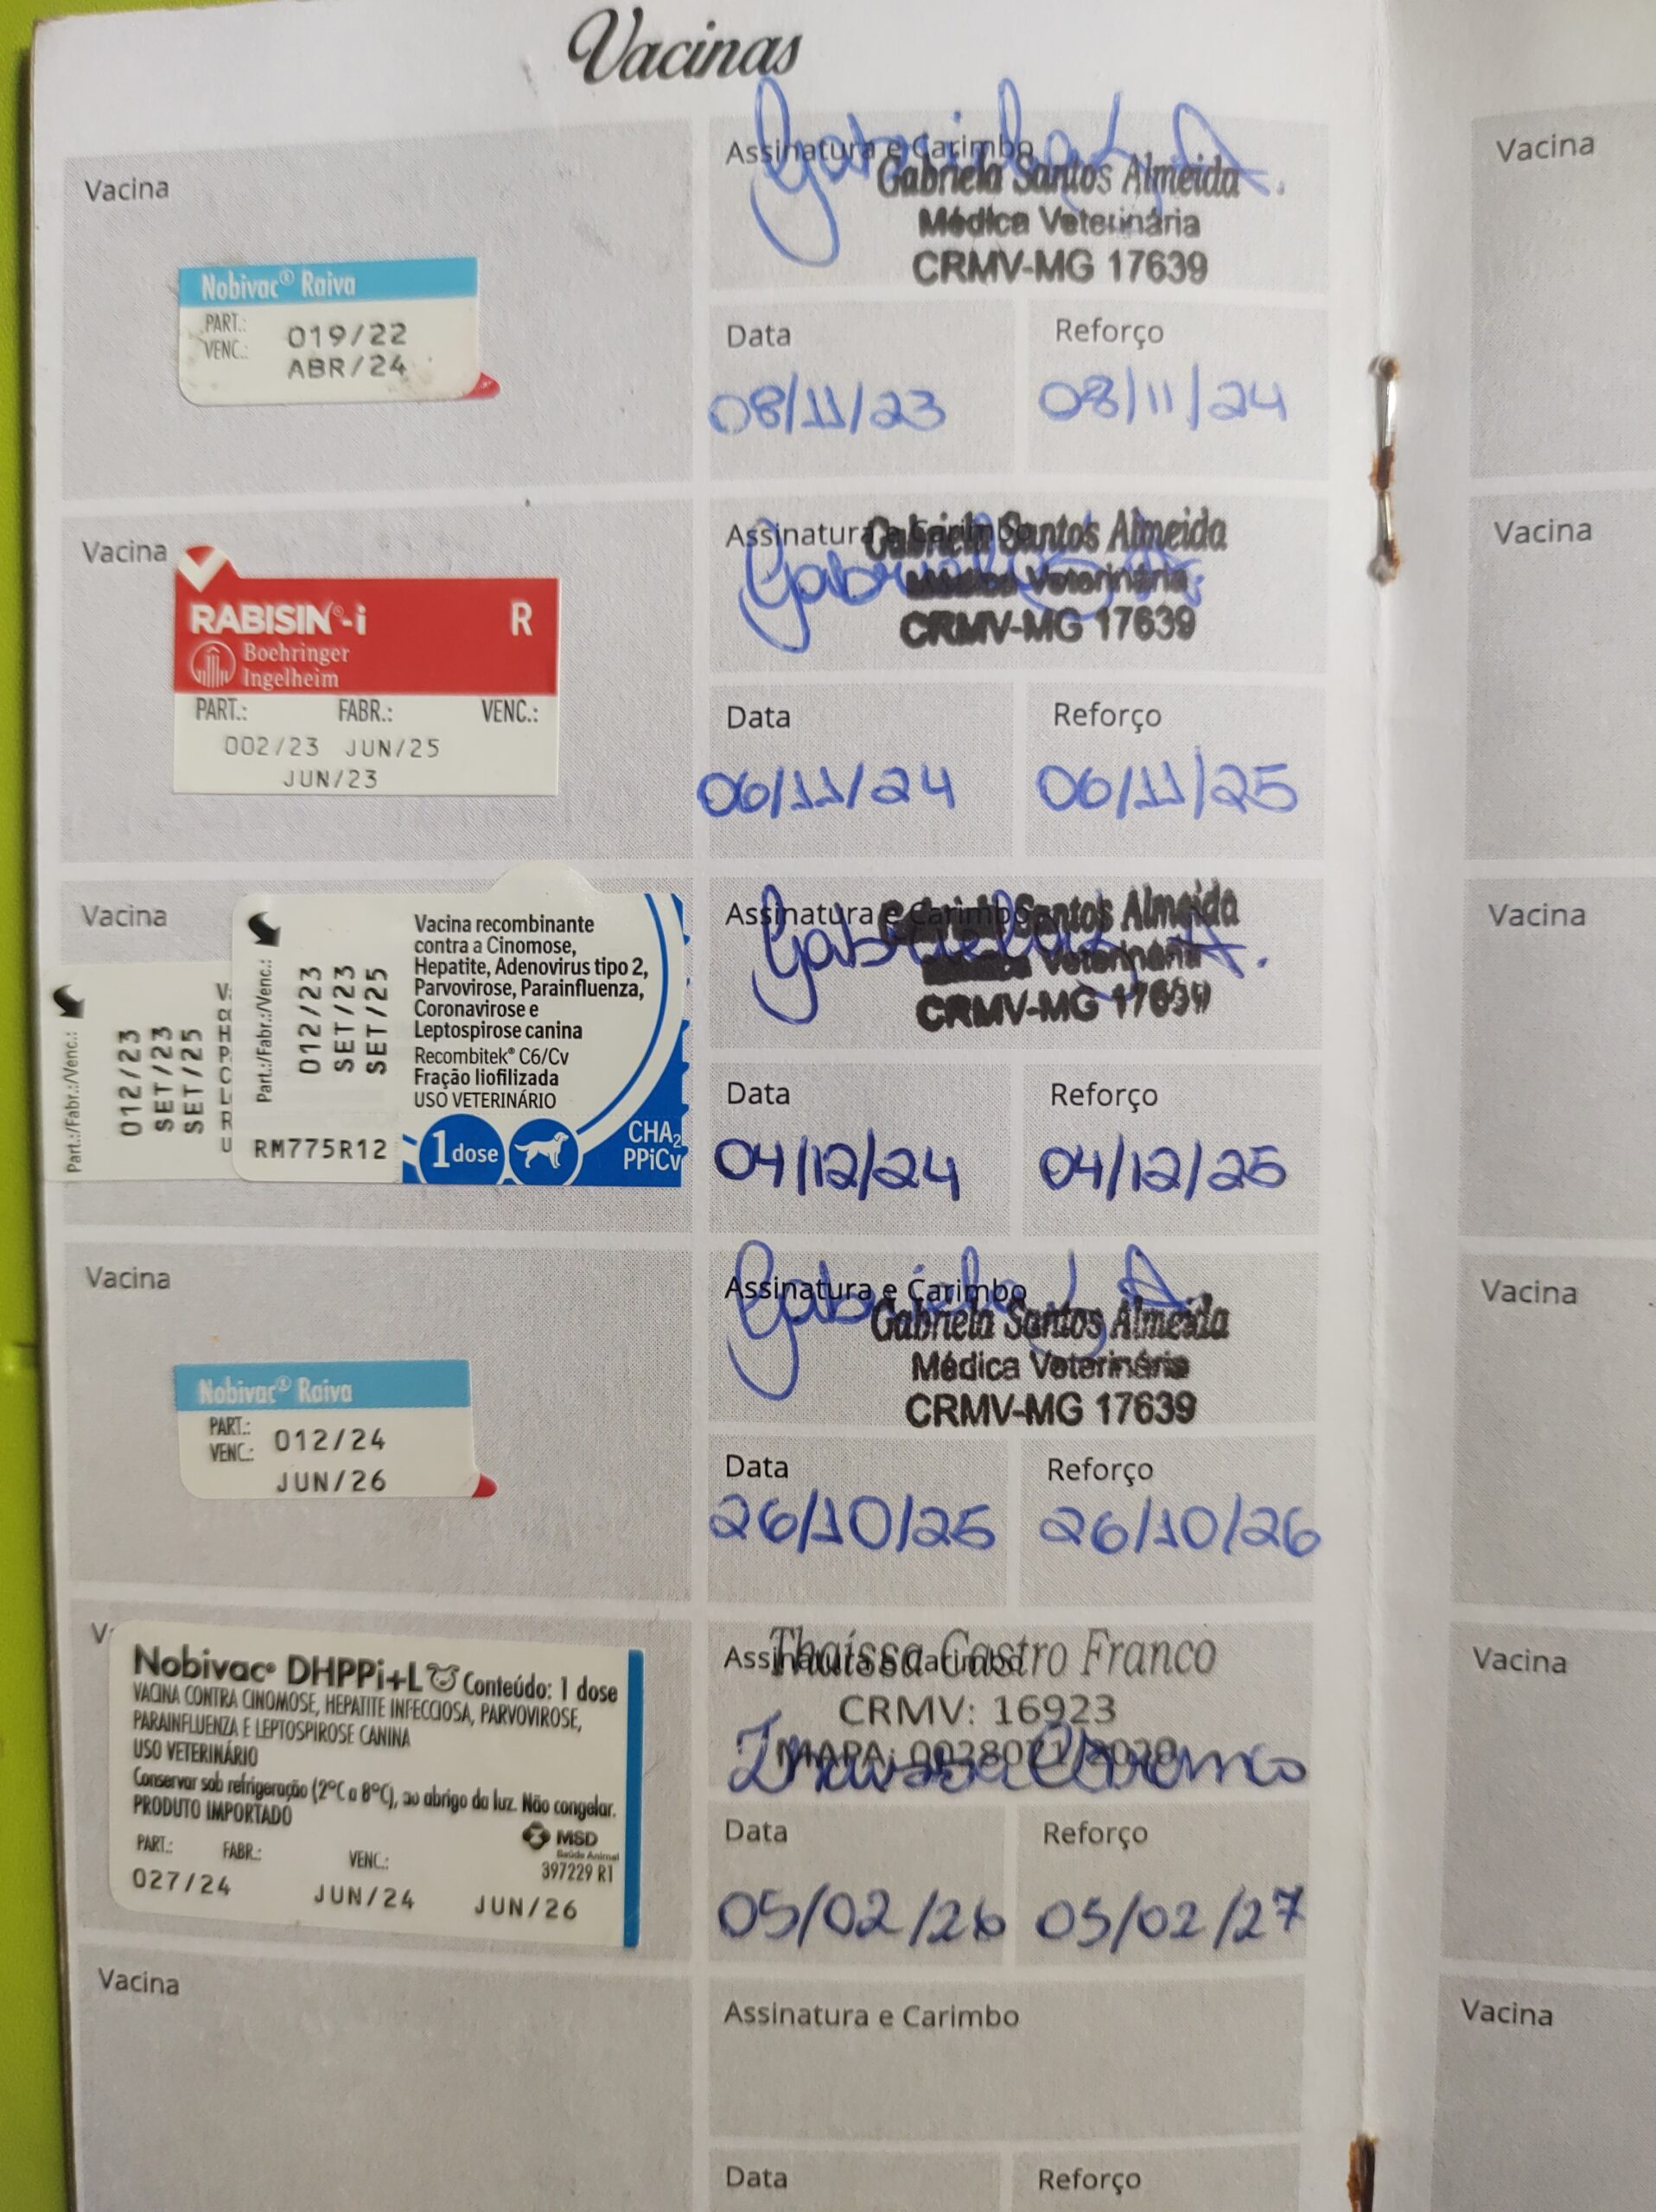 Vacinas
Vacina
Nobivac® Raiva
PART.: 019/22
VENC.: ABR/24
Assinatura e Carimbo
Gabriela Santos Almeida
Médica Veterinária
CRMV-MG 17639
Data
Reforço
08/11/23
08/11/24
Vacina
RABISIN®-i R
Boehringer
Ingelheim
PART.: FABR.: VENC.:
002/23 JUN/25
JUN/23
Assinatura e Carimbo
Gabriela Santos Almeida
Médica Veterinária
CRMV-MG 17639
Data
Reforço
06/11/24
06/11/25
Vacina
Part.:/Fabr./Venc.:
012/23
SET/23
SET/25
Part.:/Fabr./Venc.:
012/23
SET/23
SET/25
RM775R12
Vacina recombinante
contra a Cinomose,
Hepatite, Adenovirus tipo 2,
Parvovirose, Parainfluenza,
Coronavirose e
Leptospirose canina
Recombitek® C6/Cv
Fração liofilizada
USO VETERINÁRIO
1 dose
CHA2
PPiCv
Assinatura e Carimbo
Gabriela Santos Almeida
Médica Veterinária
CRMV-MG 17639
Data
Reforço
04/12/24
04/12/25
Vacina
Nobivac® Raiva
PART.: 012/24
VENC.: JUN/26
Assinatura e Carimbo
Gabriela Santos Almeida
Médica Veterinária
CRMV-MG 17639
Data
Reforço
26/10/25
26/10/26
Nobivac® DHPPi+L Conteúdo: 1 dose
VACINA CONTRA CINOMOSE, HEPATITE INFECCIOSA, PARVOVIROSE,
PARAINFLUENZA E LEPTOSPIROSE CANINA
USO VETERINÁRIO
Conservar sob refrigeração (2°C a 8°C), ao abrigo da luz. Não congelar.
PRODUTO IMPORTADO
MSD
Saúde Animal
397229 R1
PART.: FABR.: VENC.:
027/24 JUN/24 JUN/26
Assinatura e Carimbo
Thaíssa Castro Franco
CRMV: 16923
MAPA:
Data
Reforço
05/02/26
05/02/27
Vacina
Assinatura e Carimbo
Data
Reforço
Vacina
Vacina
Vacina
Vacina
Vacina
Vacina